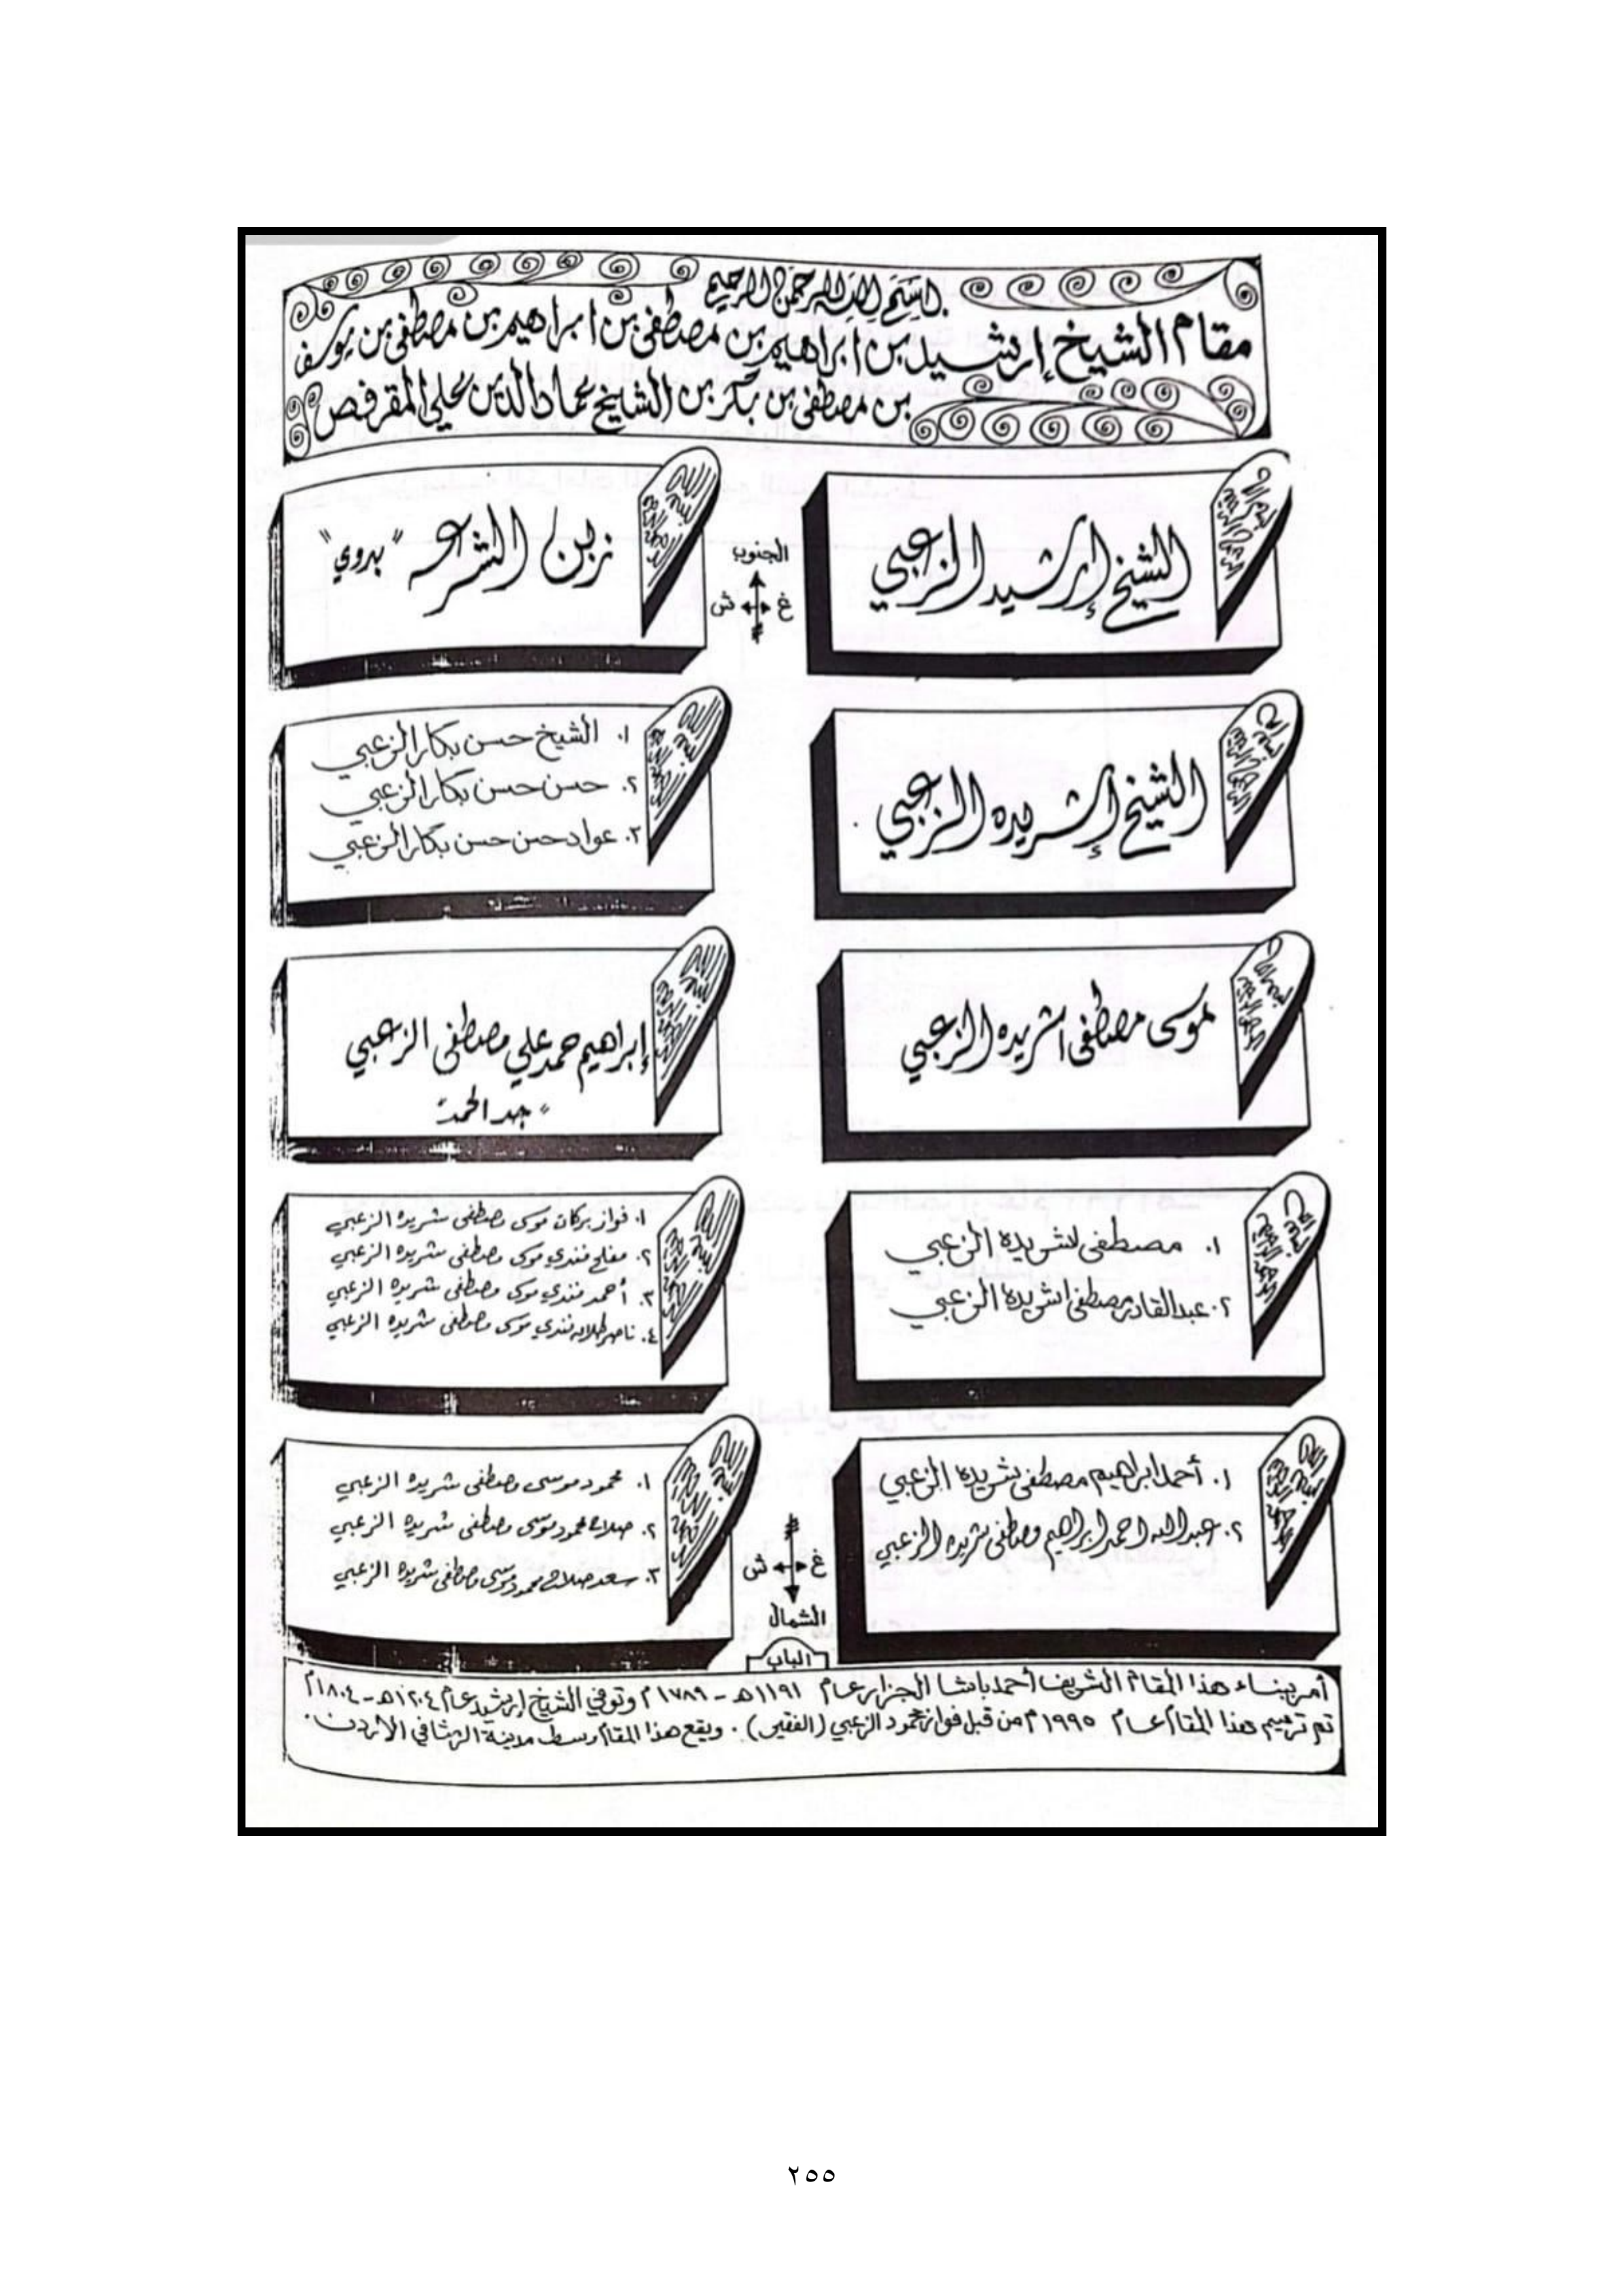 بسم الله الرحمن الرحيم
مقام الشيخ إرشيد بن ابراهيم بن مصطفى بن ابراهيم بن مصطفى بن يوسف
بن مصطفى بن بكر بن الشيخ عماد الدين علي المقرفص
الشيخ إرشيد الزعبي
زين الشرع "بدوي"
الجنوب
غ
ش
الشيخ إشريده الزعبي
١. الشيخ حسن بكار الزعبي
٢. حسن حسن بكار الزعبي
٣. عواد حسن حسن بكار الزعبي
موسى مصطفى اشريده الزعبي
إبراهيم حمد علي مصطفى الزعبي
"جد الحمد"
١. مصطفى اشريده الزعبي
٢. عبدالقادر مصطفى اشريده الزعبي
١. فواز بركات موسى مصطفى شريده الزعبي
٢. مفلح فندي موسى مصطفى شريده الزعبي
٣. أحمد فندي موسى مصطفى شريده الزعبي
٤. ناصر طلال فندي موسى مصطفى شريده الزعبي
١. أحمد ابراهيم مصطفى شريده الزعبي
٢. عبدالله احمد ابراهيم مصطفى شريده الزعبي
١. محمود موسى مصطفى شريده الزعبي
٢. صلاح محمود موسى مصطفى شريده الزعبي
٣. سعد صلاح محمود موسى مصطفى شريده الزعبي
غ
ش
الشمال
الباب
أمر ببناء هذا المقام الشريف أحمد باشا الجزار عام ١١٩١هـ - ١٧٨٩م وتوفي الشيخ إرشيد عام ١٢٠٤هـ - ١٨٠٤م
تم ترميم هذا المقام عام ١٩٩٥م من قبل فواز محمود الزعبي (الفقير). ويقع هذا المقام وسط مدينة الرمثا في الأردن.
٢٥٥